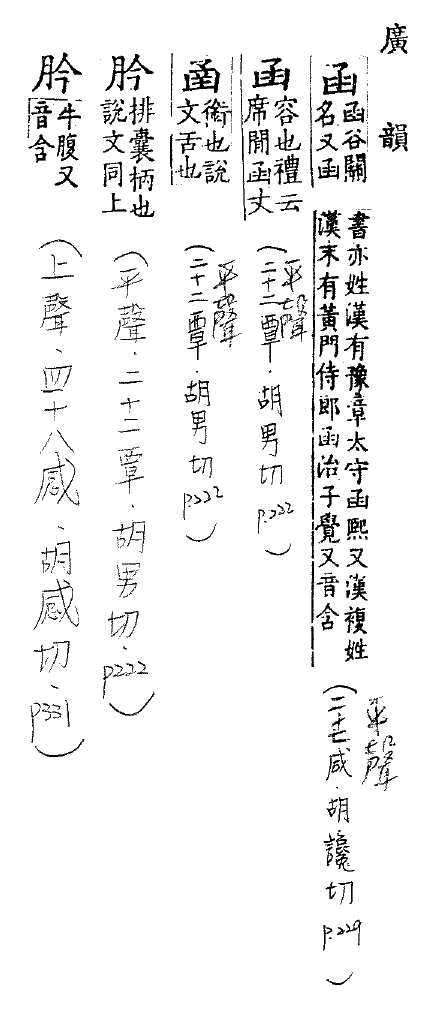 廣韻
函 函谷關
名又函
書亦姓漢有豫章太守函熙又漢複姓
漢末有黃門侍郎函治子覺又音含
平聲
(二十七咸.胡讒切 p.229)
函 容也禮云
席間函丈
平聲
(二十二覃.胡男切 p.222)
圅 銜也說
文舌也
平聲
(二十二覃.胡男切 p.222)
肣 排囊柄也
說文同上
(平聲.二十二覃.胡男切.p222)
肣 牛腹又
音含
(上聲.四十八感.胡感切.p331)